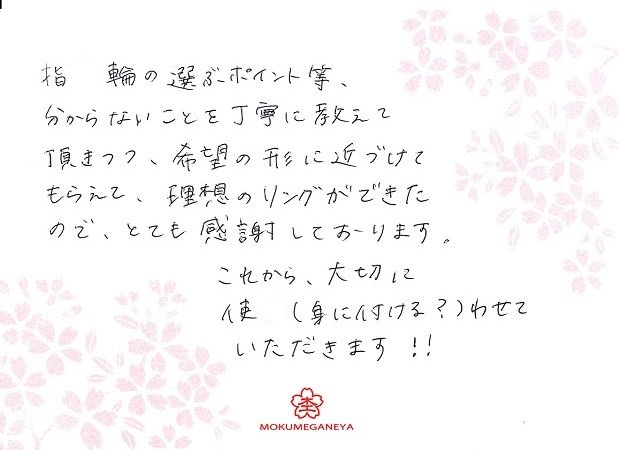 指輪の選ぶポイント等、
分からないことを丁寧に教えて
頂きつつ、希望の形に近づけて
もらえて、理想のリングができた
ので、とても感謝しております。
これから、大切に
使(身に付ける？)わせて
いただきます!!
MOKUMEGANEYA